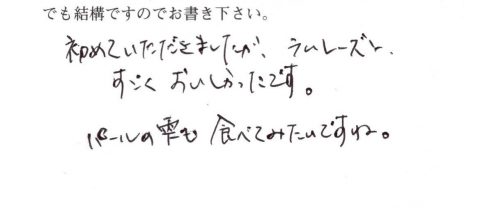 でも結構ですのでお書き下さい。
初めていただきましたが、ラムレーズン、
すごくおいしかったです。
パールの雫も食べてみたいですね。